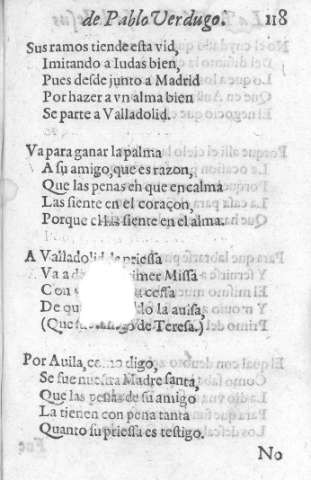 de Pablo Verdugo. 118
Sus ramos tiende esta vid,
Imitando a Iudas bien,
Pues desde junto a Madrid
Por hazer a vn alma bien
Se parte a Valladolid.
Va para ganar la palma
A su amigo, que es razon,
Que las penas en que encalma
Las siente en el coraçon,
Porque el las siente en el alma.
A Valladolid de priessa
Va a d rimer Missa
Con cessa
De qu lo la auisa,
(Que fue amigo de Teresa.)
Por Auila, como digo,
Se fue nuestra Madre santa,
Que las penas de su amigo
La tienen con pena tanta
Quanto su priessa es testigo.
No